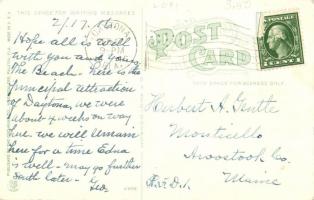 THIS SPACE FOR WRITING MESSAGES
2/17.16
Hope all is well
with you and yours.
The Beach here is the
principal attraction
of Daytona, we were
about 4 weeks on way
here. we will remain
here for a time Edna
is well - may go further
south later -
Geo.
POST
CARD
THIS SPACE FOR ADDRESS ONLY
Herbert A.
Monticello
Aroostook Co.
Maine
R.F.D. 1
1 CENT 1